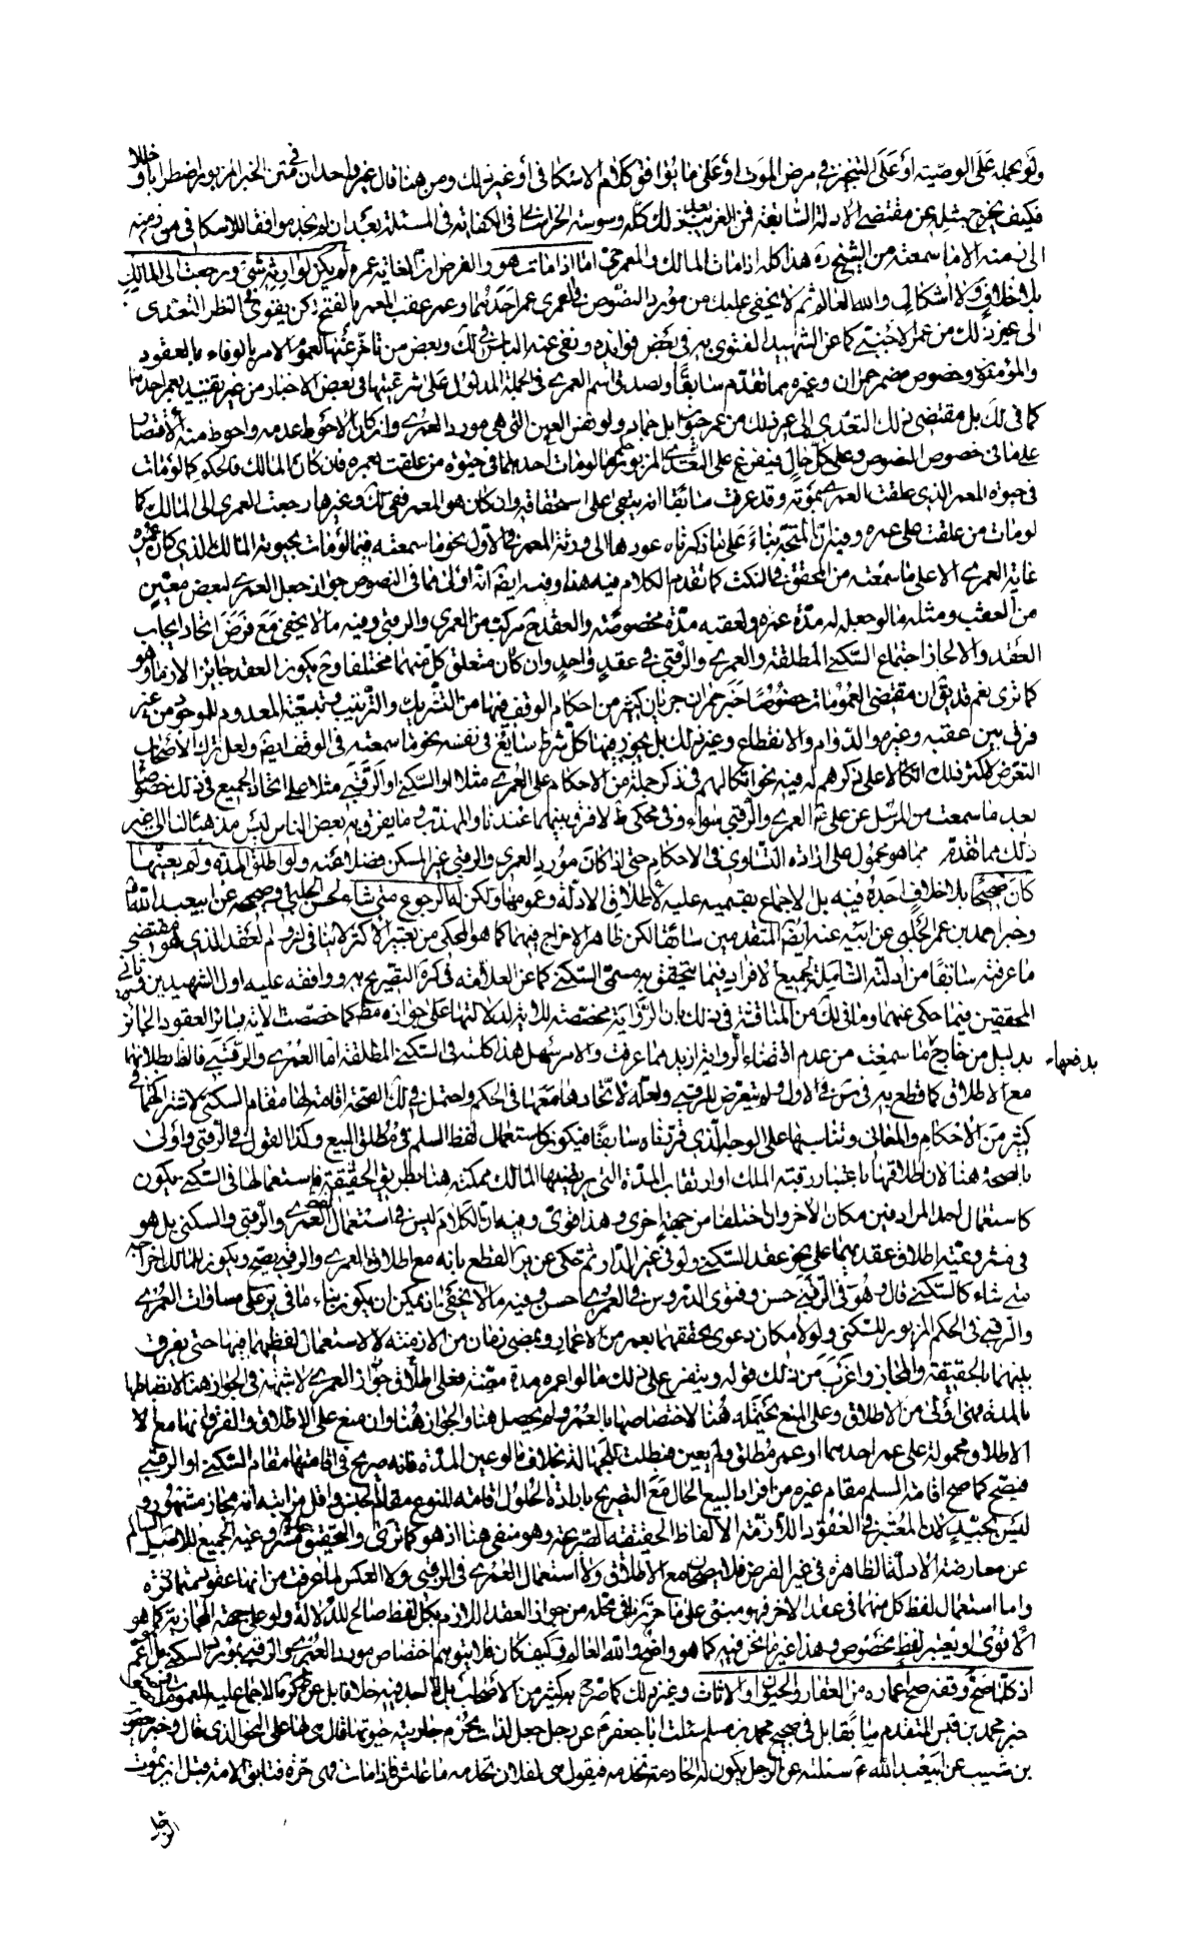 ولو بحمله على الوصية او على التنجيز في مرض الموت او على ما يوافق كلام الاسكافي او غير ذلك ومن هنا قال غير واحد ان في متن الخبر المزبور اضطرابا و خللا
فكيف يخرج بمثله عن مقتضى الادلة السابقة فمن الغريب بعد ذلك كله وسوسة الخراساني في الكفاية في المسئلة بعد ان لم يجد موافقا للاسكافي من زمنه
الى زمنه الا ما سمعته من الشيخ ره هذا كله اذا مات المالك والمعمر حي اما اذا مات هو والفرض ان الغاية عمره لم يكن لوارثه شيء ورجعت الى المالك
بلا خلاف ولا اشكال والله العالم ثم لا يخفى عليك من مورد النصوص في العمرى عمر احدهما وعمر عقب المعمر بالفتح لكن يقوى في النظر التعدي
الى غير ذلك من عمر الاجنبي كما عن الشهيد الفتوى به في بعض فوائده ونفى عنه الباس في لك وبعض من تاخر عنها لعموم الامر بالوفاء بالعقود
والمؤمنون وخصوص مضمر حمران وغيره مما تقدم سابقا وبصدق اسم العمرى في الجملة المدلول على شرعيتها في بعض الاخبار من غير تقييد بعمر احدهما
كما في لك بل مقتضى ذلك التعدي الى غير ذلك من عمر حيوان بل جماد ولو نفس العين التي هي مورد العمرى وان كان الاحوط عدمه واحوط منه الاقتصار
على ما في خصوص النصوص وعلى كل حال فيتفرع على التعدي المزبور حكم ما لو مات احدهما في حيوة من علقت بعمره فان كان المالك فالحكم كما لو مات
في حيوة المعمر الذي علقت العمرى بموته وقد عرفت سابقا انه يبقى على استحقاقه وان كان هو المعمر ففي لك وغيرها رجعت العمرى الى المالك كما
لو مات من علقت على عمره وفيه ان المتجه بناء على ما ذكرناه عودها الى ورثة المعمر في الاول نحو ما سمعته فيما لو مات بحيوة المالك الذي كان عمره
غاية العمرى الا على ما سمعته من المحقق في النكت كما تقدم الكلام فيه هذا وفيه ايضا انه اولى مما في النصوص جواز جعل العمرى لبعض معين
من العقب ومثله ما لو جعله له مدة عمره ولعقبه مدة مخصوصة والعقد ح مركب من العمرى والرقبى وفيه ما لا يخفى مع فرض اتحاد ايجاب
العقد والا لجاز اجتماع السكنى المطلقة والعمرى والرقبى في عقد واحد وان كان متعلق كل منهما مختلفا وح يكون العقد جايزا لازما وهو
كما ترى نعم قد يق ان مقتضى العمومات خصوصا خبر حمران جريان كثير من احكام الوقف فيها من التشريك والترتيب وتبعية المعدوم للموجود من غير
فرق بين عقبه وغيره والدوام والانقطاع وغير ذلك بل يجوز فيها كل شرط سايغ في نفسه نحو ما سمعته في الوقف ايضا ولعل ترك الاصحاب
التعرض لاكثر ذلك اتكالا على ذكرهم له فيه نحو اتكالهم في ذكر جملة من الاحكام على العمرى مثلا او السكنى او الرقبى مثلا على اتحاد الجميع في ذلك خصوصا
بعد ما سمعت من المرسل عن علي ع العمرى والرقبى سواء وفي محكي ط لا فرق بينهما عندنا والمهذب وما يفرق به بعض الناس ليس مذهبا لنا الى غير
ذلك مما تقدم مما هو محمول على ارادة التساوي في الاحكام حتى اذا كان مورد العمرى والرقبى غير المسكن فضلا عنه ولو اطلق المدة ولم يعينها
كان صحيحا بلا خلاف اجده فيه بل الاجماع بقسميه عليه لاطلاق الادلة وعمومها ولكن له الرجوع متى شاء لحسن الحلبي وصحيحه عن ابي عبد الله ع
وخبر احمد بن عمر الحلبي عن ابيه عنه ايضا المتقدمين سابقا لكن ظاهر الاخراج فيهما كما هو المحكي من تعبير الاكثر لا ينافي لزوم العقد الذي هو مقتضى
ما عرفته سابقا من ادلته الشاملة لجميع الافراد فيما يتحقق به مسمى السكنى كما عن العلامة في كره التصريح به ووافقه عليه اول الشهيدين وثاني
المحققين فيما حكي عنهما وما في لك من المناقشة في ذلك بان الرواية مخصصة للاية لدلالتها على جوازه مطلقا كما خصصت الاية بسائر العقود الجائزة
بدليل من خارج بدفعها ما سمعت من عدم اقتضاء الرواية ازيد مما عرفت والامر سهل هذا كله في السكنى المطلقة اما العمرى والرقبى فالظ بطلانهما
مع الاطلاق كما قطع به في س في الاول ولم يتعرض للرقبى ولعله لاتحادها معها في الحكم واحتمل في لك الصحة اقامة لها مقام السكنى لاشتراكها في
كثير من الاحكام والمعاني وتناسبها على الوجه الذي قررناه سابقا فيكون كاستعمال لفظ السلم في مطلق البيع وكذا القول في الرقبى واولى
بالصحة هنا لان اطلاقها باعتبار رقبة الملك او ارتقاب المدة التي يرتضيها المالك ممكنه هنا بطريق الحقيقة فاستعمالها في السكنى يكون
كاستعمال احد المرادفين مكان الاخر وان اختلفا من جهة اخرى وهذا قوي وفيه ان الكلام ليس في استعمال لفظ العمرى والرقبى والسكنى بل هو
في مشروعية اطلاق عقدهما على نحو عقد السكنى ولو في غير الدار ثم حكي عن ير القطع بانه مع اطلاق العمرى والرقبى يصح ويكون للمالك اخراجه
متى شاء كالسكنى قال وهو في الرقبى حسن وفتوى الدروس في العمرى احسن وفيه ما لا يخفى اذ يمكن ان يكون بناء ما في ير على مساوات العمرى
والرقبى في الحكم المزبور للسكنى ولو لامكان دعوى تحققهما بعمر من الاعمار وبمضي زمان من الازمنة لا لاستعمال لفظهما فيها حتى يفرق
بينهما بالحقيقة والمجاز واغرب من ذلك قوله ويتفرع على ذلك ما لو اعمره مدة معينة فعلى اطلاق جواز العمرى لا شبهة في الجواز هنا لانضباطها
بالمدة فهي اولى من الاطلاق وعلى المنع يحتمله هنا لاختصاصها بالعمر ولم يحصل هنا والجواز هنا وان منع على الاطلاق والفرق انها مع لا
الاطلاق محمولة على عمر احدهما او عمر مطلق ولم يعين فبطلت للجهالة بخلاف ما لو عين المدة فانه صريح في اقامتها مقام السكنى او الرقبى
فيصح كما صح اقامة السلم مقام غيره من افراد البيع الحال مع التصريح بارادة الحلول اقامة للنوع مقام الجنس واقل مراتبه انه مجاز مشهور و
ليس بجيد لان المعتبر في العقود اللازمة الالفاظ الحقيقة الصريحة وهو منفي هنا اذ هو كما ترى والتحقيق عدم مشروعية الجميع للاصل السالم
عن معارضة الادلة الظاهرة في غير الفرض فلا يصحان مع الاطلاق ولا استعمال العمرى في الرقبى ولا العكس لما عرفت من انها عقود متمايزة
واما استعمال لفظ كل منهما في عقد الاخر فهو مبني على ما حررناه في محله من جواز العقد اللازم بكل لفظ صالح للدلالة ولو على جهة المجازية كما هو
الاقوى او يعتبر لفظ مخصوص وهذا غير ما نحن فيه كما هو واضح والله العالم وكيف كان فلا يتوهم اختصاص مورد العمرى والرقبى بمورد السكنى بل هو اعم
اذ كلما صح وقفه صح اعماره من العقار والحيوان والاثاث وغير ذلك كما صرح به كثير من الاصحاب بل لا اجد فيه خلافا بل عن كره الاجماع عليه للعمومات
خبر محمد بن قيس المتقدم سابقا بل في صحيح محمد بن مسلم سئلت ابا جعفر ع عن رجل جعل لذات محرم جاريته حيوتها قال هي لها على النحو الذي قال وخبر يعقوب
بن شعيب عن ابي عبد الله ع سئلته عن الرجل يكون له الخادمة تخدمه فيقول هي لفلان تخدمه ما عاش فاذا مات فهي حرة فتابق الامة قبل ان يموت
الرجل